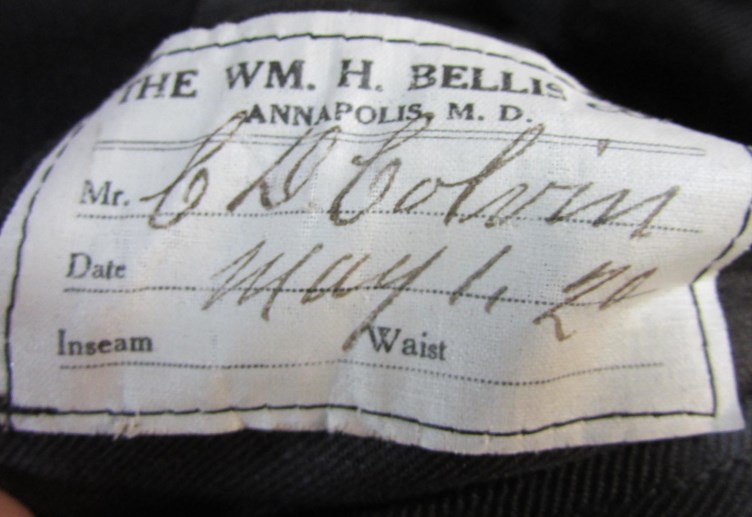 THE WM. H. BELLIS CO.
ANNAPOLIS, M. D.
Mr. C D Colvin
Date May 1, 20
Inseam Waist